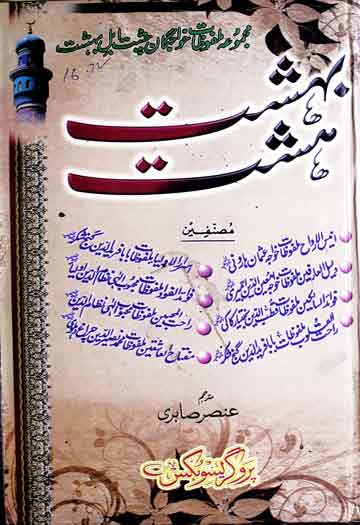 مجموعہ ملفوظات خواجگان چشت اہل بہشت
ہشت
بہشت
مصنفین
انیس الارواح ملفوظات خواجہ عثمان ہارونی
دلیل العارفین ملفوظات خواجہ معین الدین اجمیری
فوائد السالکین ملفوظات قطب الدین بختیار کاکی
راحت القلوب ملفوظات بابا فرید الدین گنج شکر
اسرار الاولیاء ملفوظات بابا فرید الدین گنج شکر
فوائد الفواد ملفوظات محبوب الٰہی نظام الدین اولیاء
راحت المحبین ملفوظات محبوب الٰہی نظام الدین
مفتاح العاشقین ملفوظات محمد نصیر الدین چراغ دہلوی
مترجم
عنصر صابری
پروگریسو بکس